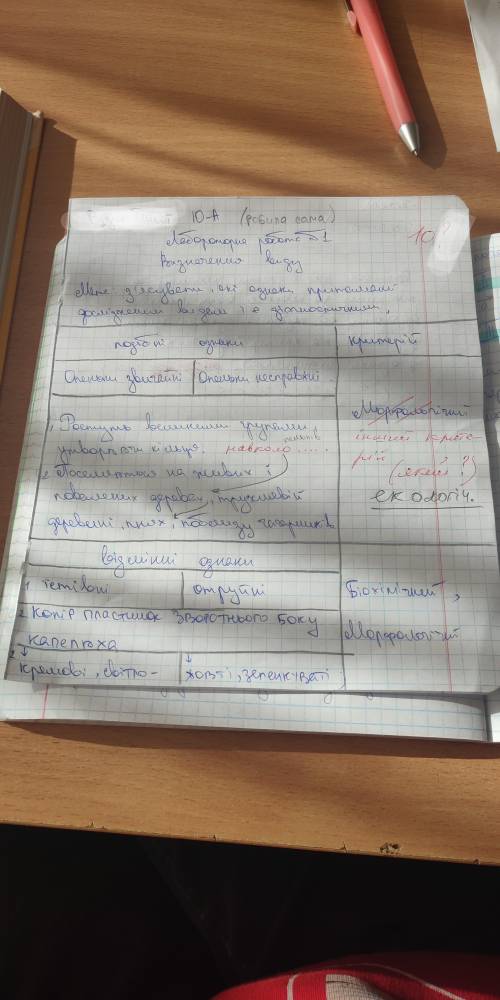 10-А (робила сама)
10?
Лабораторна робота №1
Визначення виду
Мета: з'ясувати, які ознаки притаманні
дослідженим видам і є діагностичними.
подібні ознаки
Критерій
Опеньки звичайні
Опеньки несправжні
1. Ростуть великими групами
утворюючи кільця. навколо .... пеньків
Морфологічний
інший крите-
рій
(який?)
екологіч.
2. Поселяються на живих і
повалених деревах, трухлявій
деревині, пнях, поблизу чагарників
відмінні ознаки
1. їстівні
отруйні
Біохімічний,
2. Колір пластинок зворотнього боку
капелюха
Морфологічний
кремові, світло-
жовті, зеленкуваті